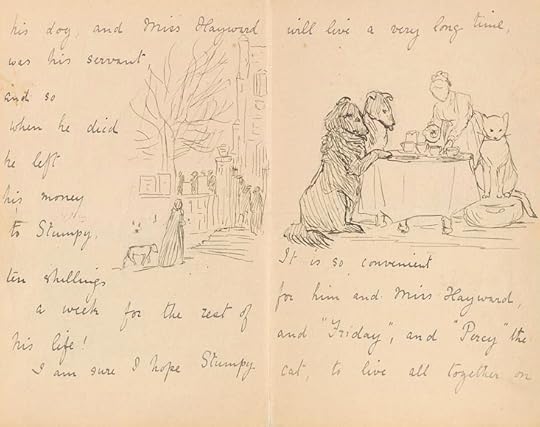 his dog, and Miss Hayward
was his servant,
and so
when he died
he left
his money
to Stumpy.
ten shillings
a week for the rest of
his life!
I am sure I hope Stumpy
will live a very long time,
It is so convenient
for him and Miss Hayward,
and "Friday", and "Percy" the
cat, to live all together on